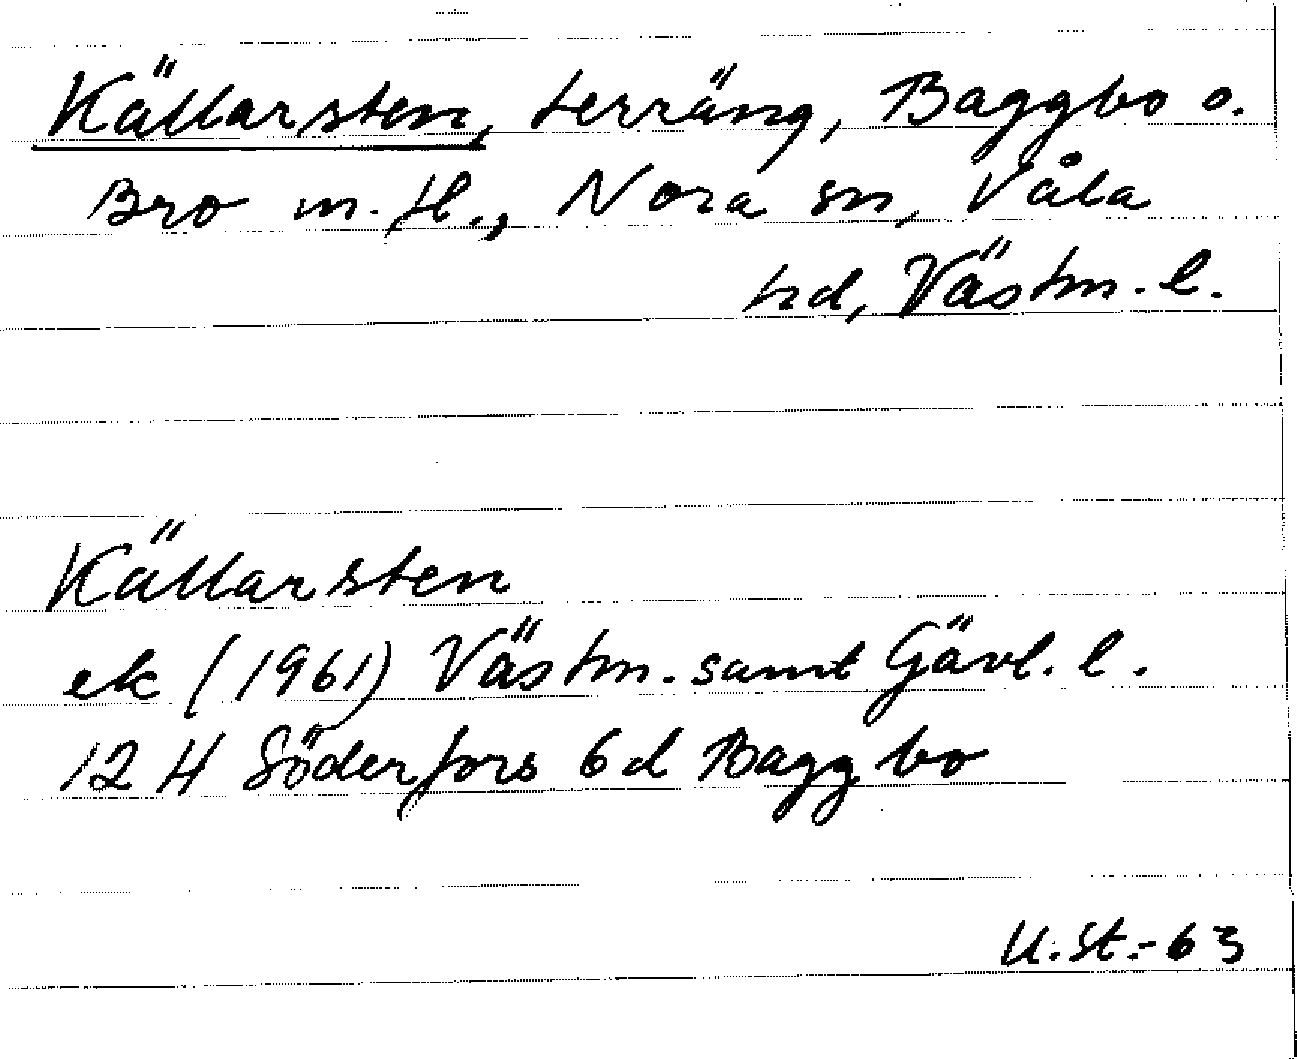 Källarsten, terräng, Baggbo o.
Bro m.fl., Nora sn, Våla
hd, Västm. l.
Källarsten
ek (1961) Västm. samt Gävl. l.
12 H Söderfors 6d Baggbo
U.St.-63